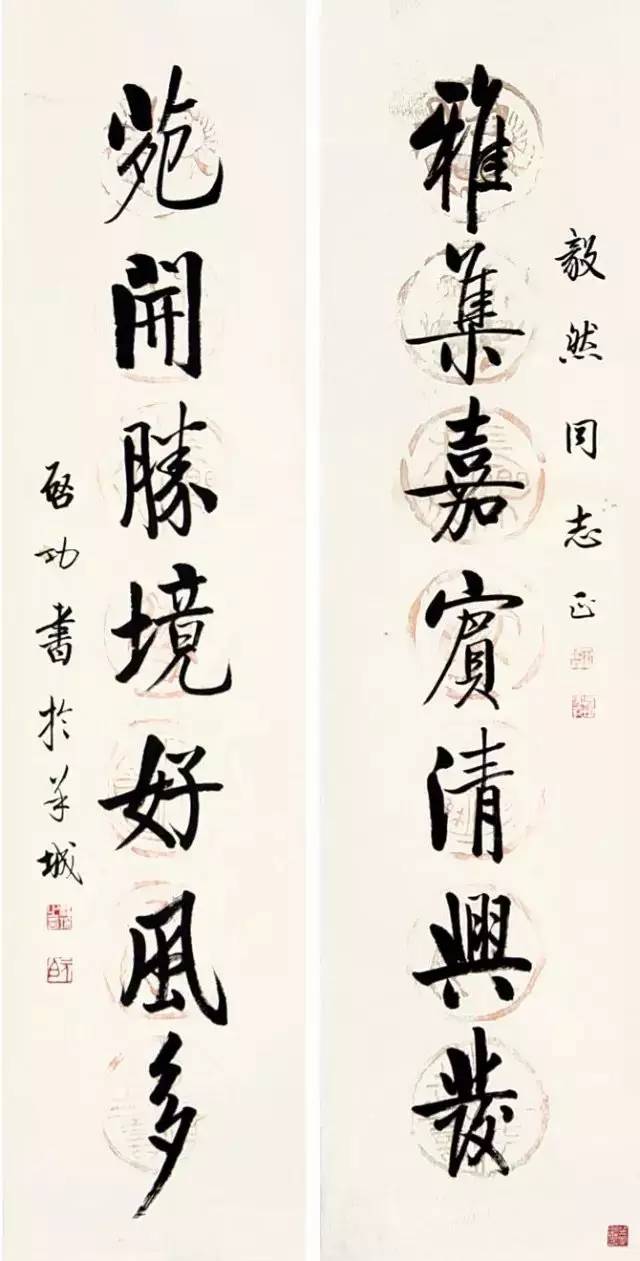 毅然同志正
雅集嘉賓清興發
苑開勝境好風多
啓功書於羊城